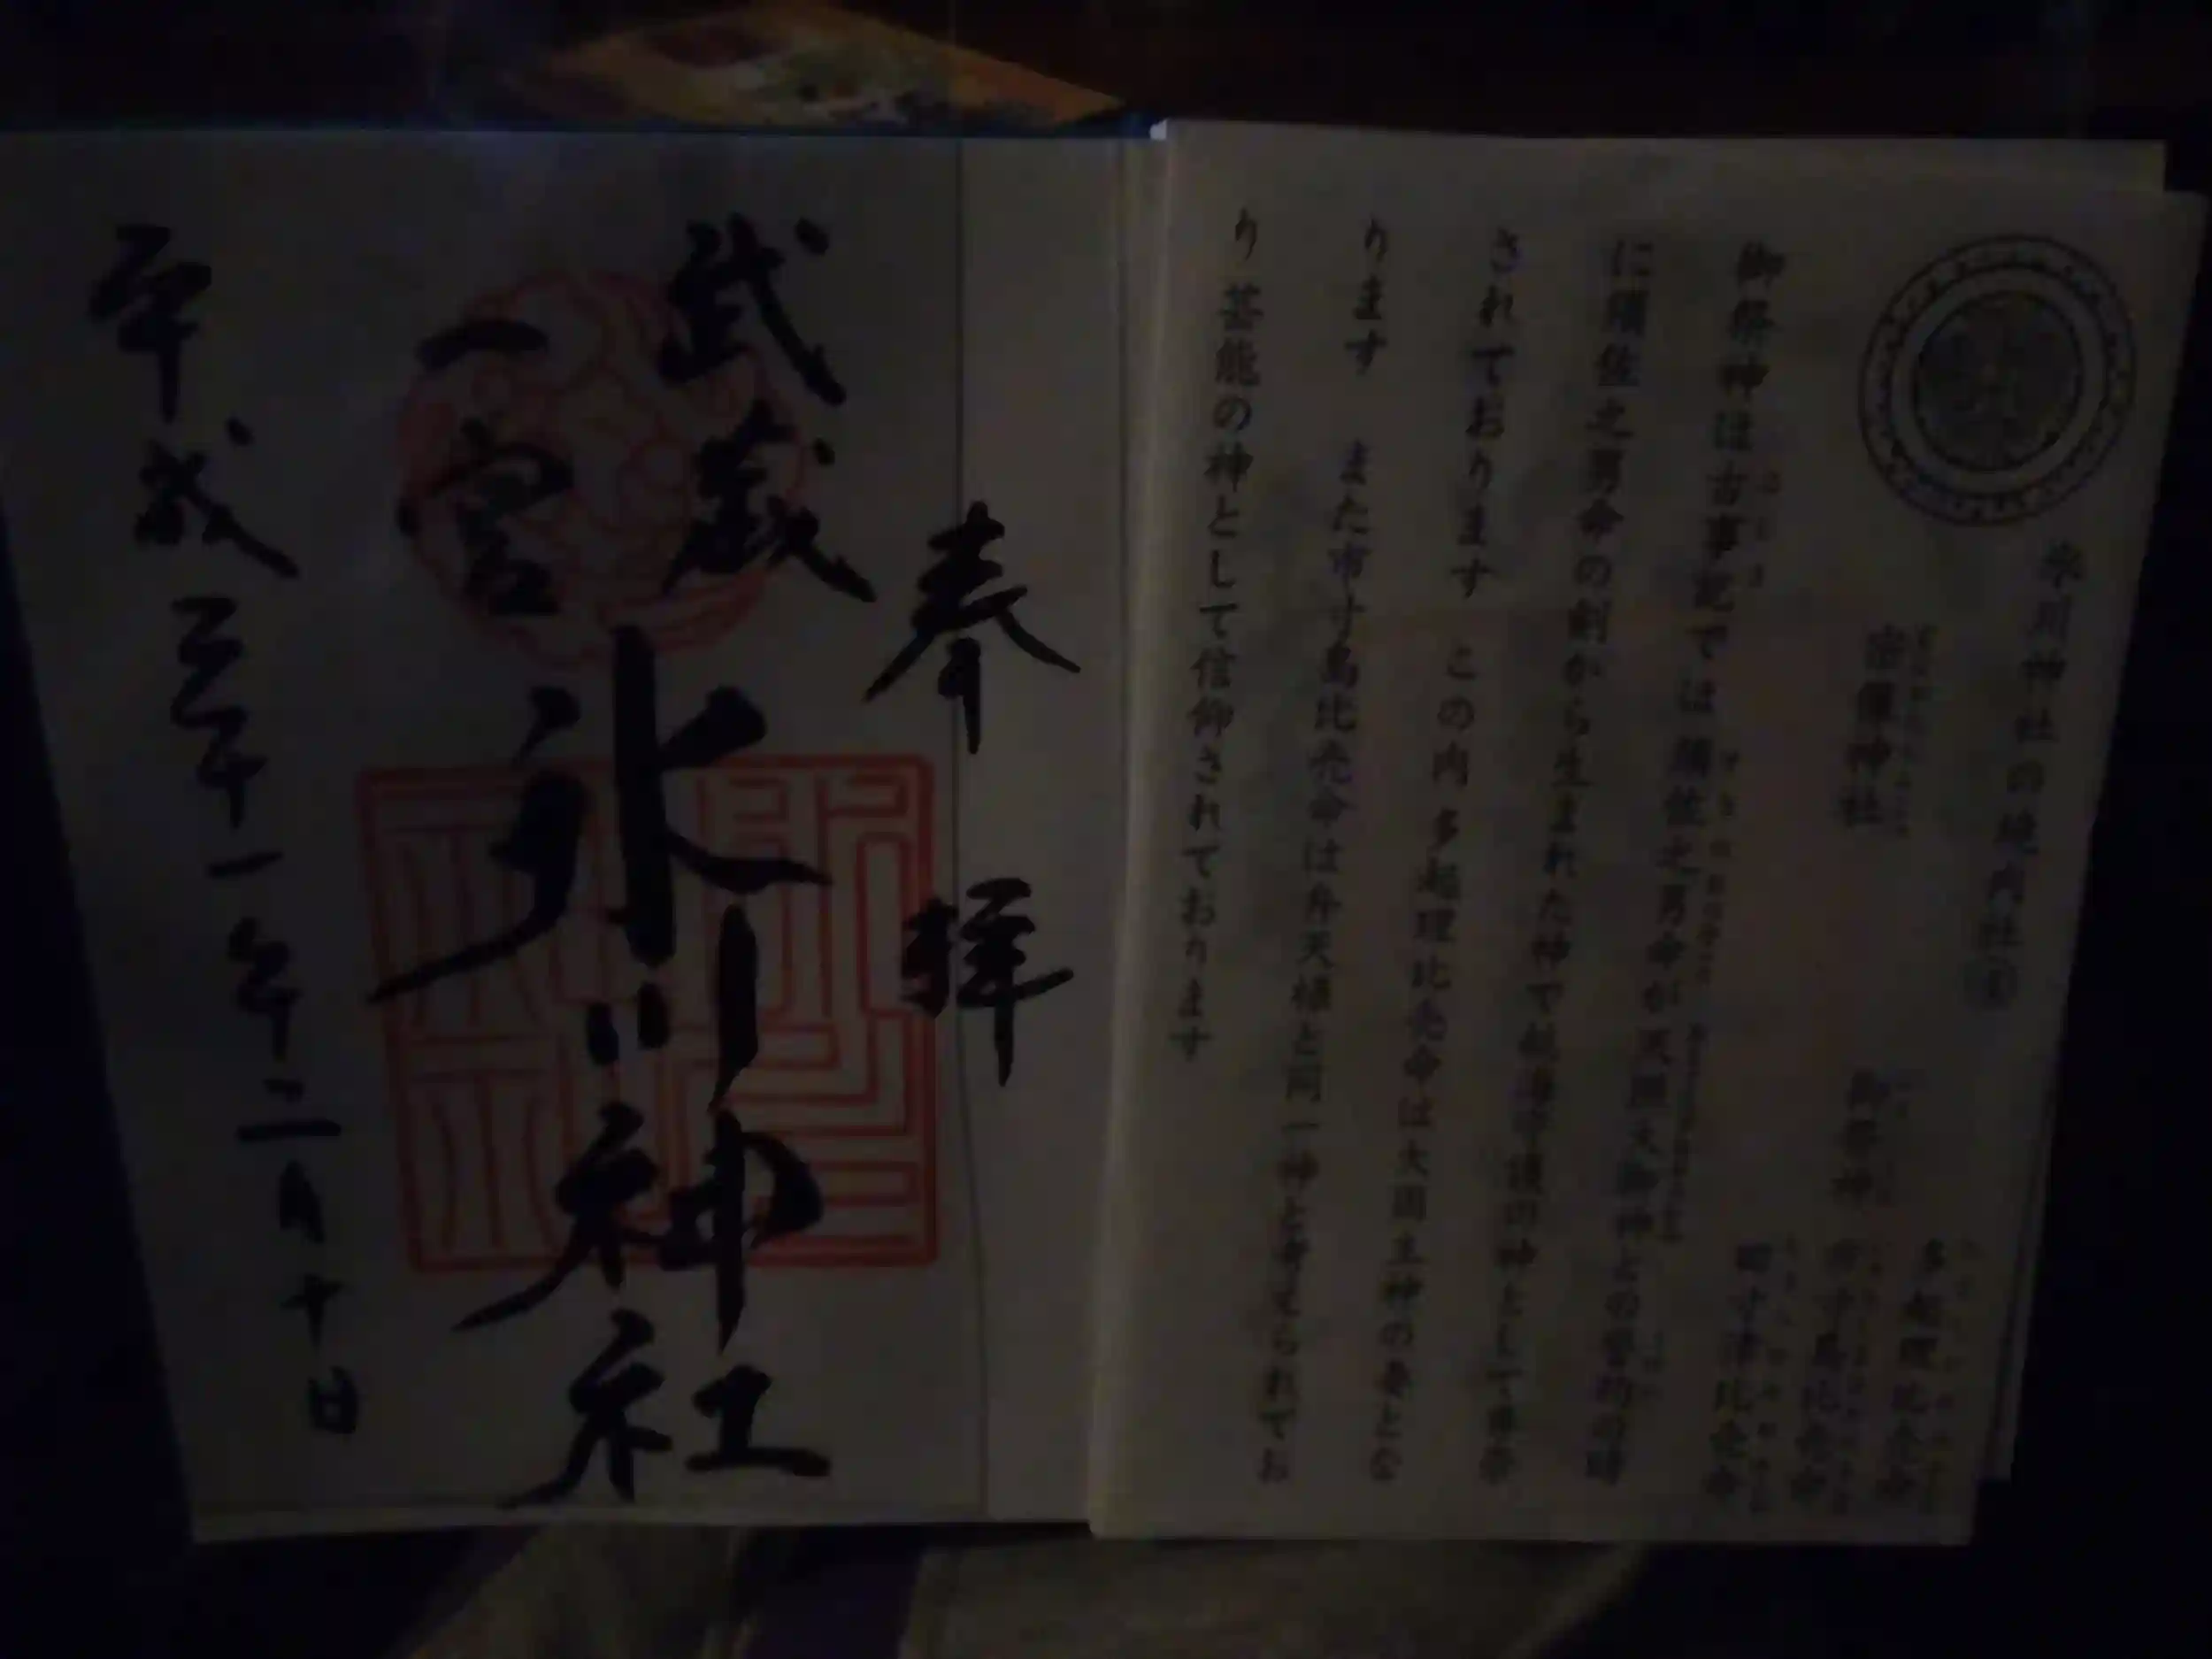 氷川神社の境内社
宗像神社
御祭神
多起理比売命
市寸島比売命
田寸津比売命
御祭神は古事記では須佐之男命が天照大御神との誓約の時
に須佐之男命の剣から生まれた神で航海守護の神として奉斎
されております この内多起理比売命は大国主神の妻とな
ります また市寸島比売命は弁天様と同一神と考えられてお
り芸能の神として信仰されております
奉拝
武蔵
一宮
氷川神社
平成三十一年二月十日